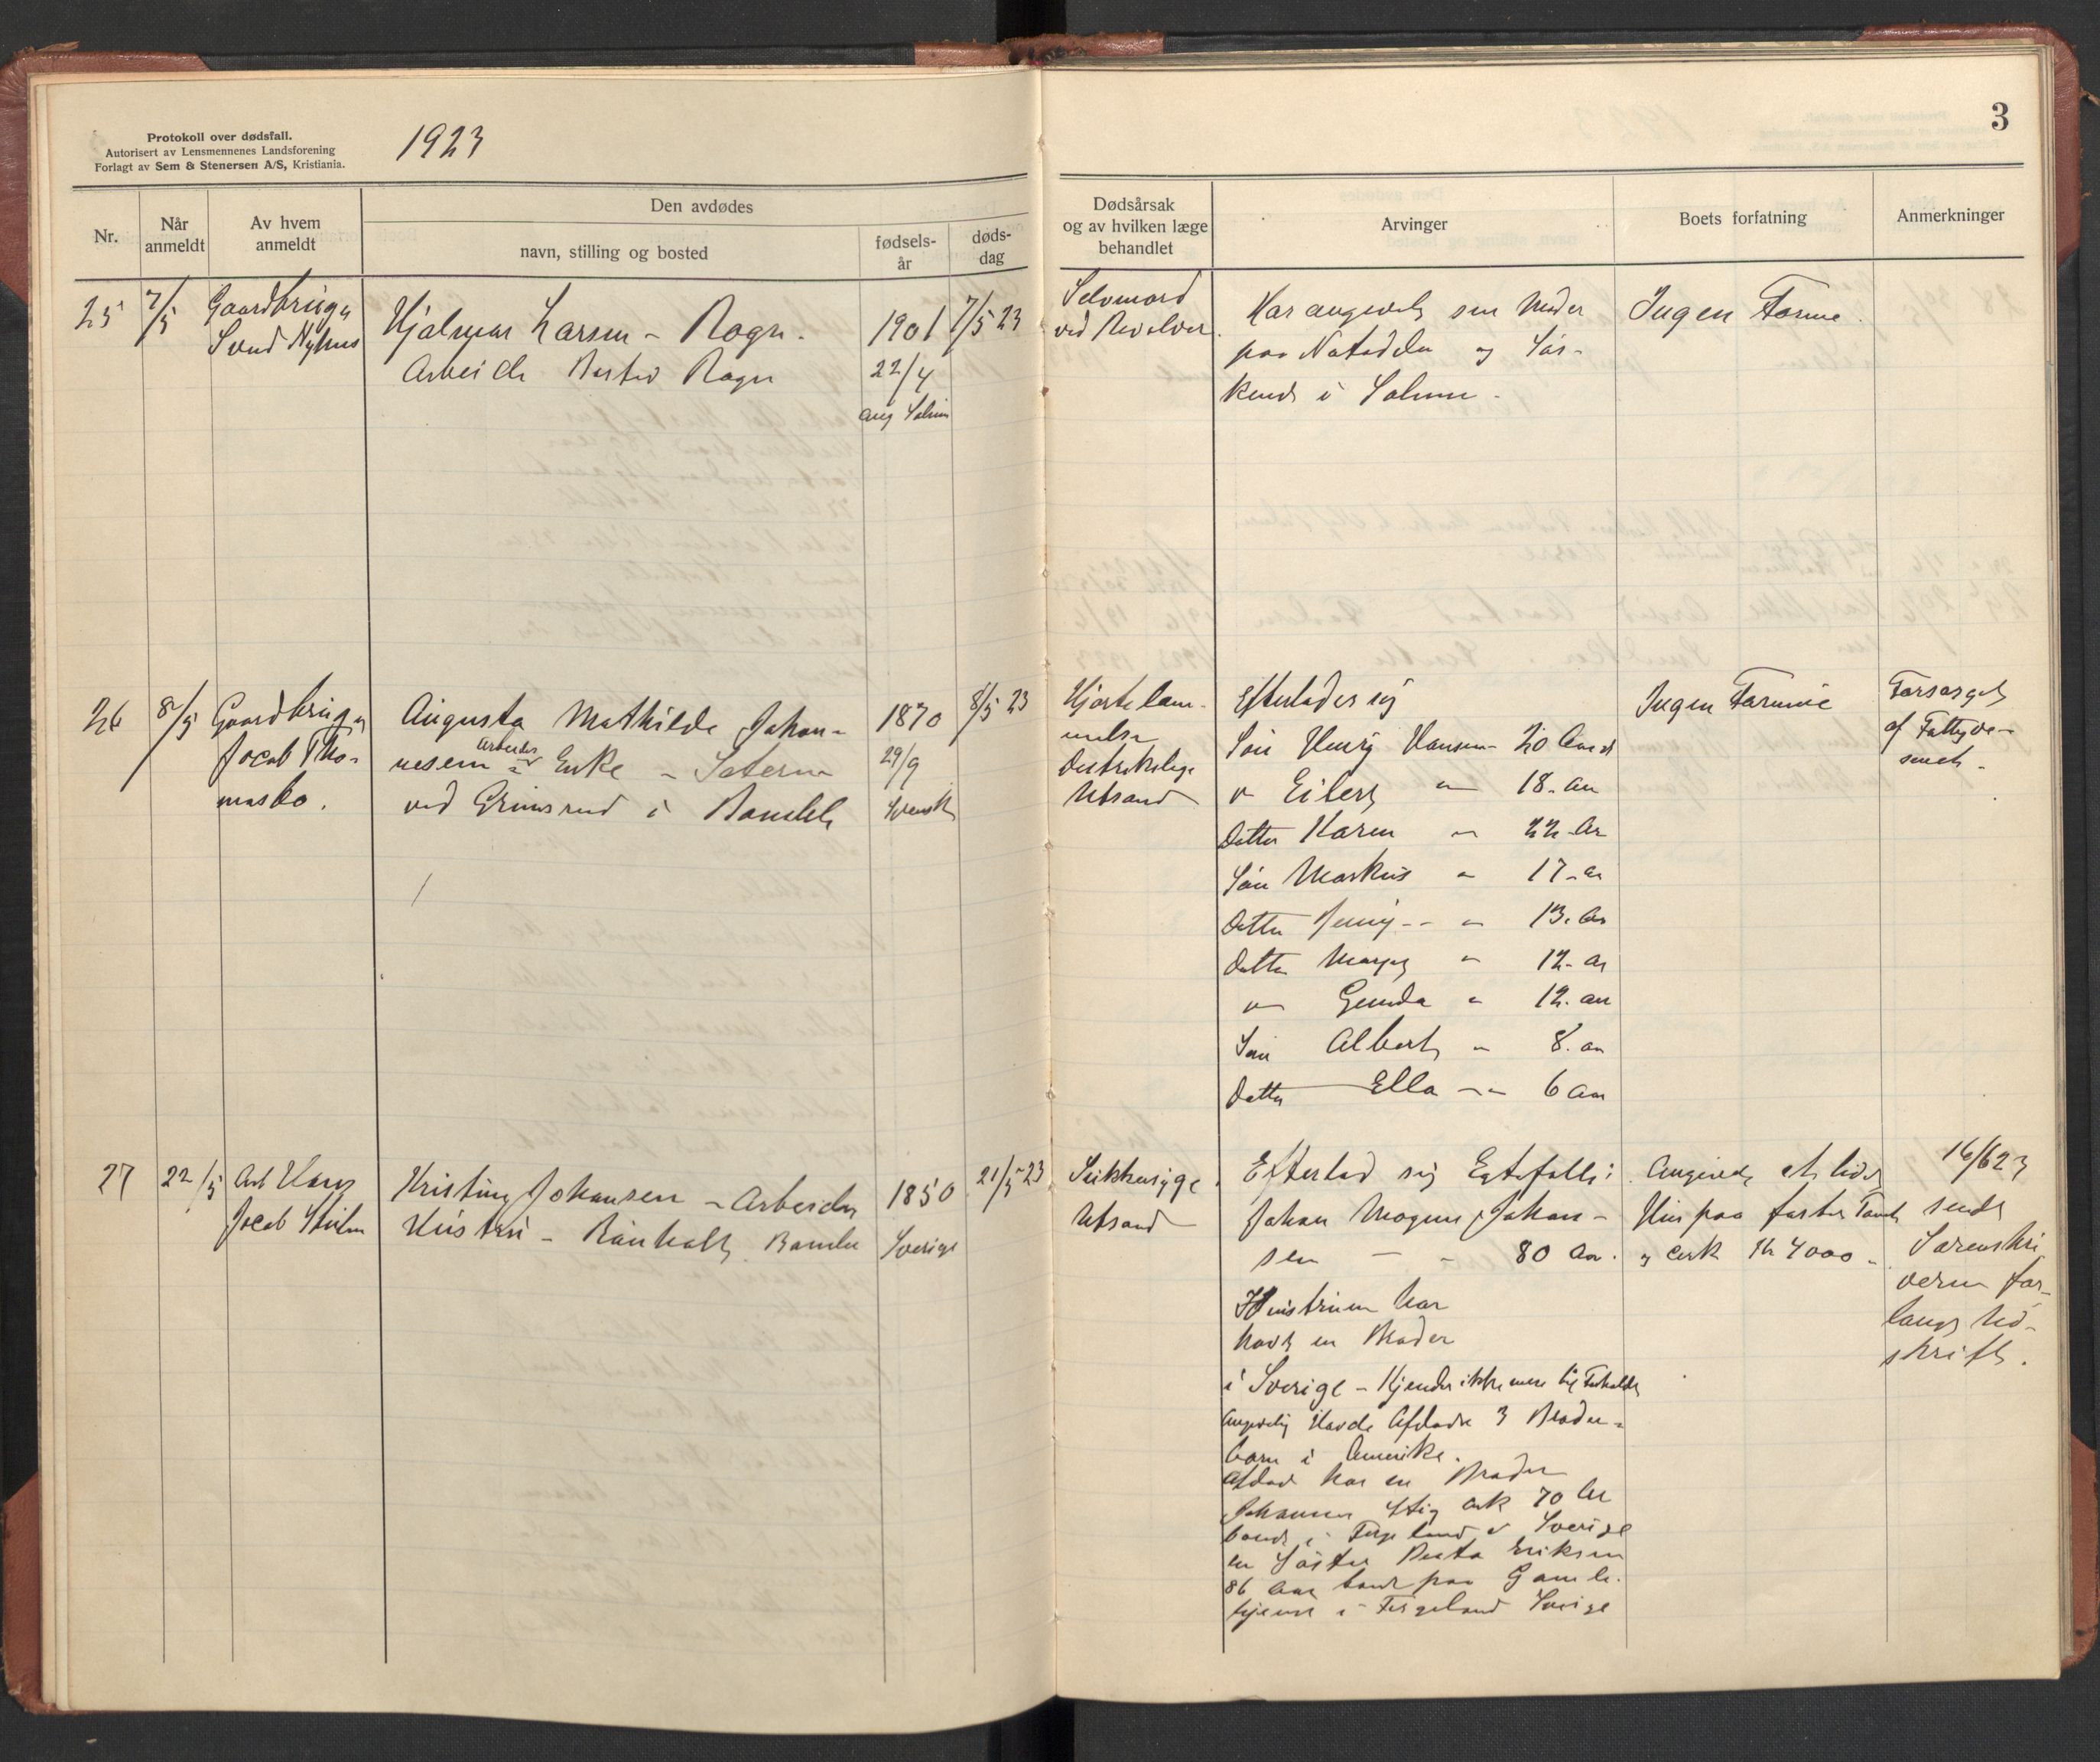 Protokoll over dødsfall.
Autorisert av Lensmennenes Landsforening
Forlagt av Sem & Stenersen A/S, Kristiania.
1923
3
Nr.
Når
anmeldt
Av hvem
anmeldt
Den avdødes
navn, stilling og bosted
fødsels-
år
døds-
dag
Dødsårsak
og av hvilken læge
behandlet
Arvinger
Boets forfatning
Anmerkninger
25
7/5
Gaardbruger
Svend Nyhus
Hjalmar Larsen - Rogn.
Arbeider Bosted Rogn
1901
22/4
ang Solum
7/5 23
Selvmord
ved Revolver.
Har angivelig sin Moder
paa Notodden og Søs-
kende i Solum.
Ingen Formue.
26
8/5
Gaardbruger
Jocob Tho-
masbo.
Augusta Mathilde Johan-
nesen - Arbeider Enke - Sætern
ved Grimsrud i Bamble
1870
29/9
Svensk
8/5 23
Hjertelam-
melse
Distriktslæge
Ubsand
Efterlader sig
Søn Henry Hansen - 20 Aar
" Eilert " 18. Aar
Datter Karen " 22 Aar
Søn Markus " 17 - Aar
Datter Jenny - " 13. Aar
Datter Margit " 12. Aar
" Gunda " 12. Aar
Søn Albert " 8. Aar
Datter Ella - " 6 Aar
Ingen Formue
Forsørget
af Fattigvæ-
senet.
27
22/5
Jocob
Kristine Johansen - Arbeider
Hustru - Rønholt Bamble
1850
Sverige
21/5 23
Sukkersyge
Ubsand
Efterlod sig Egtefælle:
Johan Magnus Johan-
sen - - 80 Aar.
Hustruen har
havt en Broder
i Sverige - Kjender ikke mere til Forholdet
Angivelig havde Afdøde 3 Broder-
barn i Amerika.
Afdød har en Broder
Johannes Stig cirk 70 Aar
boende i Fergeland i Sverige
en Søster Beata Eriksen
86 Aar boende paa Gamle-
hjemmet i Fergeland Sverige
Angivelig et lidet
Hus paa fæstet Tomt
og cirk Kr 4000 -
16/6 23
sendt
Sorenskri
veren for-
langt Ud-
skrift.